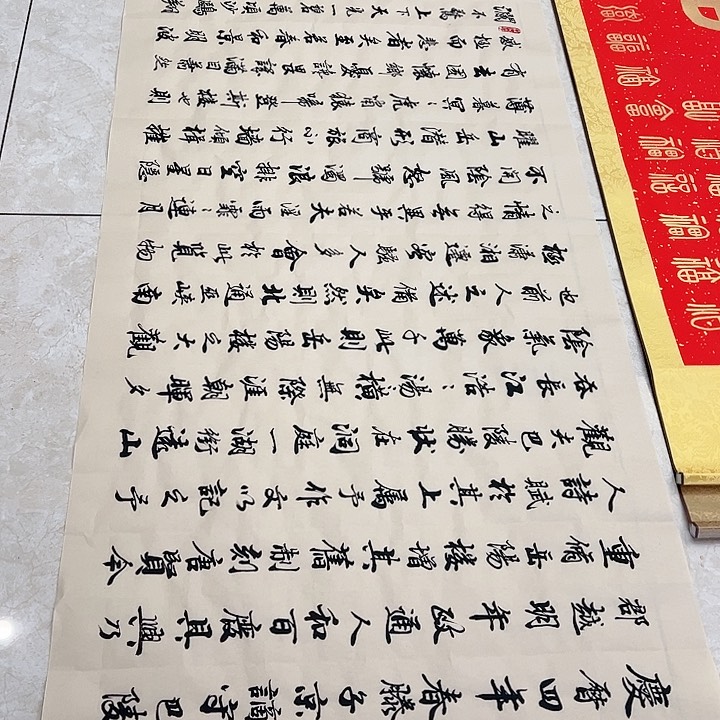 慶曆四年春滕子京謫守巴陵
郡越明年政通人和百廢具興乃
重脩岳陽樓增其舊制刻唐賢今
人詩賦於其上屬予作文以記之予
觀夫巴陵勝狀在洞庭一湖銜遠山
吞長江浩〻湯橫無際涯朝暉夕
陰氣象萬千此則岳陽樓之大觀
也前人之述備矣然則北通巫峽南
極瀟湘遷客騷人多會於此覧物
之情得無異乎若夫淫雨霏〻連月
不開陰風怒號濁浪排空日星隱
耀山岳潛形商旅不行檣傾楫摧
薄暮冥〻虎嘯猿啼登斯樓也則
有去國懷鄉憂讒畏譏滿目蕭然
感極而悲者矣至若春和景明波
瀾不驚上下天光一碧萬頃沙鷗翔